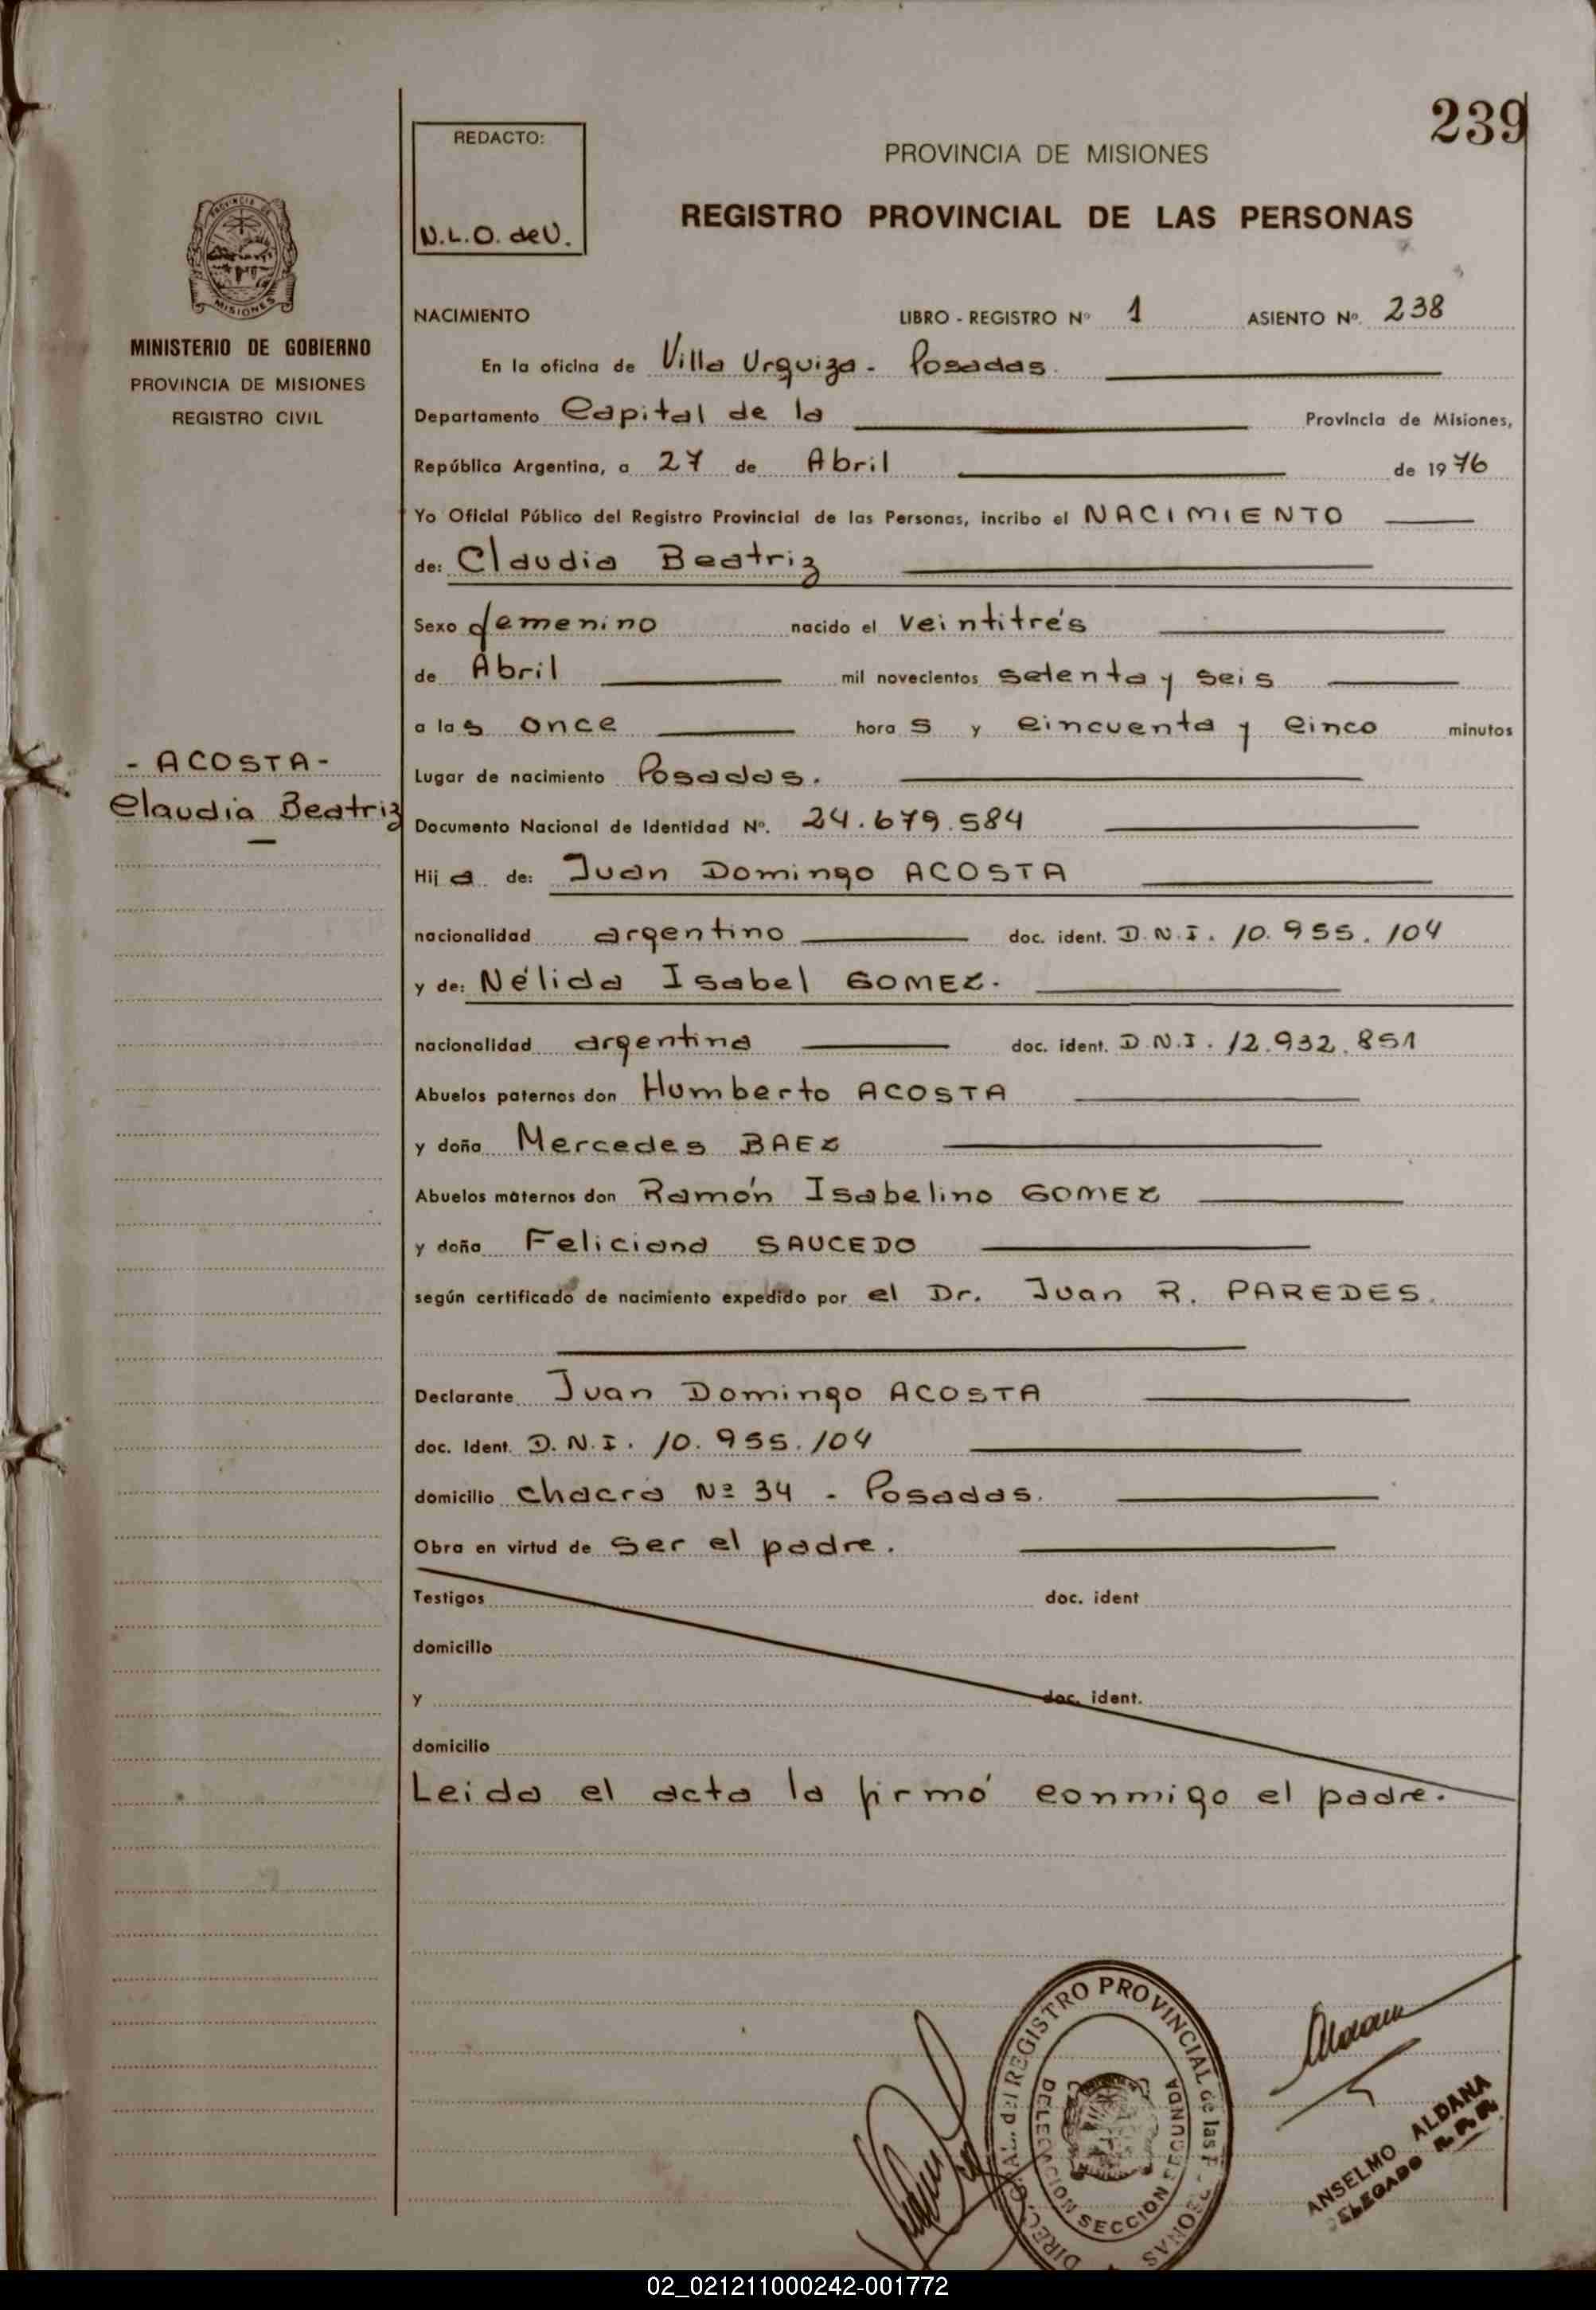 239
REDACTO:
N.L.O. de V.
PROVINCIA DE MISIONES
REGISTRO PROVINCIAL DE LAS PERSONAS
PROVINCIA DE MISIONES
MINISTERIO DE GOBIERNO
PROVINCIA DE MISIONES
REGISTRO CIVIL
- ACOSTA -
Claudia Beatriz
NACIMIENTO LIBRO - REGISTRO Nº 1 ASIENTO Nº. 238
En la oficina de Villa Urquiza - Posadas.
Departamento Capital de la Provincia de Misiones,
República Argentina, a 27 de Abril de 1976
Yo Oficial Público del Registro Provincial de las Personas, incribo el NACIMIENTO
de: Claudia Beatriz
Sexo femenino nacido el veintitrés
de Abril mil novecientos setenta y seis
a las once horas y cincuenta y cinco minutos
Lugar de nacimiento Posadas.
Documento Nacional de Identidad Nº. 24.679.584
Hija de: Juan Domingo ACOSTA
nacionalidad argentino doc. ident. D.N.I. 10.955.104
y de: Nélida Isabel GOMEZ.
nacionalidad argentina doc. ident. D.N.I. 12.932.851
Abuelos paternos don Humberto ACOSTA
y doña Mercedes BAEZ
Abuelos maternos don Ramón Isabelino GOMEZ
y doña Feliciana SAUCEDO
según certificado de nacimiento expedido por el Dr. Juan R. PAREDES.
Declarante Juan Domingo ACOSTA
doc. Ident. D.N.I. 10.955.104
domicilio chacra Nº 34 - Posadas.
Obra en virtud de ser el padre.
Testigos doc. ident
domicilio
y doc. ident.
domicilio
Leida el acta la firmó conmigo el padre.
DIREC. GRAL. del REGISTRO PROVINCIAL de las PERSONAS
DELEGACION SECCION SEGUNDA
ANSELMO ALDANA
DELEGADO R.P.P.
02_021211000242-001772